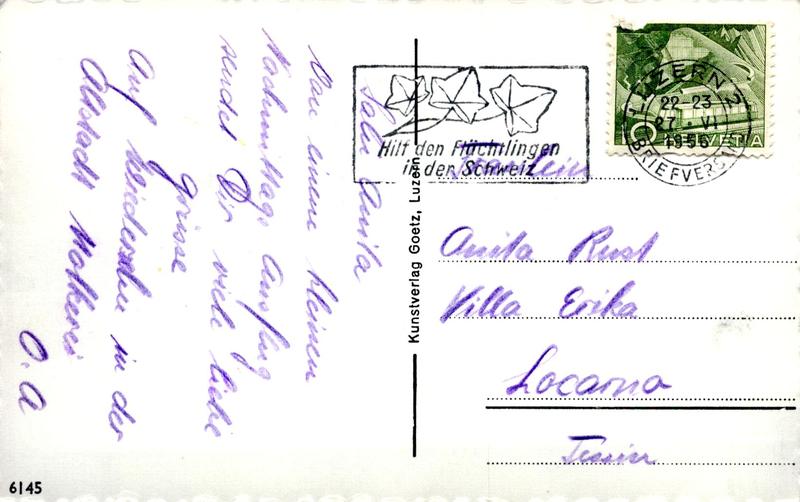 Salu Anita
Von einem kleinen
Nachmittags Ausflug
sendet Dir viele liebe
grüsse
Auf Wiedersehen in der
Altstadt
O. A
Kunstverlag Goetz, Luzern
6145
Hilf den Flüchtlingen
in der Schweiz
LUZERN 2
22-23
27. VI
1956
BRIEFVERSAND
10 HELVETIA
Fräulein
Anita Rust
Villa Erika
Locarno
Tessin